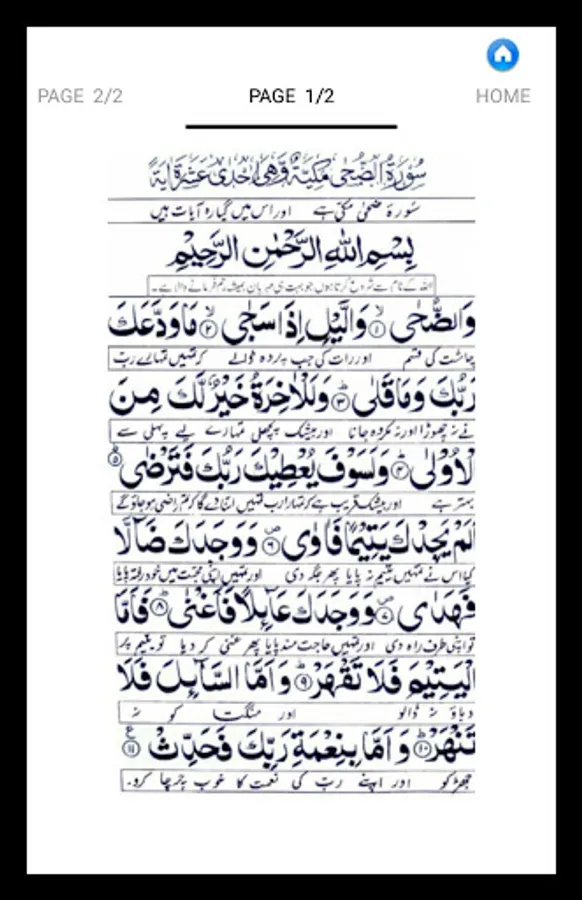 PAGE 2/2 PAGE 1/2 HOME
سُوْرَةُ الضُّحٰى مَكِّيَّةٌ وَّهِىَ اِحْدٰى عَشْرَةَ اٰيَةً
سُورۂ ضحیٰ مکی ہے اور اس میں گیارہ آیات ہیں
بِسْمِ اللّٰهِ الرَّحْمٰنِ الرَّحِيْمِ
اللہ کے نام سے شروع کرتا ہوں جو بہت ہی مہربان ہمیشہ رحم فرمانے والا ہے۔
وَالضُّحٰى ۙ‏﴿۱﴾ وَالَّيْلِ اِذَا سَجٰى ۙ‏﴿۲﴾ مَا وَدَّعَكَ
چاشت کی قسم اور رات کی جب پردہ ڈالے کہ تمہیں تمہارے رب
رَبُّكَ وَمَا قَلٰى ؕ‏﴿۳﴾ وَلَلْاٰخِرَةُ خَيْرٌ لَّكَ مِنَ
نے نہ چھوڑا اور نہ مکروہ جانا اور بیشک پچھلی تمہارے لیے پہلی سے
الْاُوْلٰى ؕ‏﴿۴﴾ وَلَسَوْفَ يُعْطِيْكَ رَبُّكَ فَتَرْضٰى ؕ‏﴿۵﴾
بہتر ہے اور بیشک قریب ہے کہ تمہارا رب تمہیں اتنا دے گا کہ تم راضی ہو جاؤ گے
اَلَمْ يَجِدْكَ يَتِيْمًا فَاٰوٰى ۪‏﴿۶﴾ وَوَجَدَكَ ضَآلًّا
کیا اس نے تمہیں یتیم نہ پایا پھر جگہ دی اور تمہیں اپنی محبت میں خود رفتہ پایا
فَهَدٰى ۪‏﴿۷﴾ وَوَجَدَكَ عَآٮِٕلًا فَاَغْنٰى ؕ‏﴿۸﴾ فَاَمَّا
تو اپنی طرف راہ دی اور تمہیں حاجت مند پایا پھر غنی کر دیا تو یتیم پر
الْيَتِيْمَ فَلَا تَقْهَرْ ؕ‏﴿۹﴾ وَاَمَّا السَّآٮِٕلَ فَلَا
دباؤ نہ ڈالو اور منگتا کو نہ
تَنْهَرْ ؕ‏﴿۱۰﴾ وَاَمَّا بِنِعْمَةِ رَبِّكَ فَحَدِّثْ ‏﴿۱۱﴾
جھڑکو اور اپنے رب کی نعمت کا خوب چرچا کرو۔